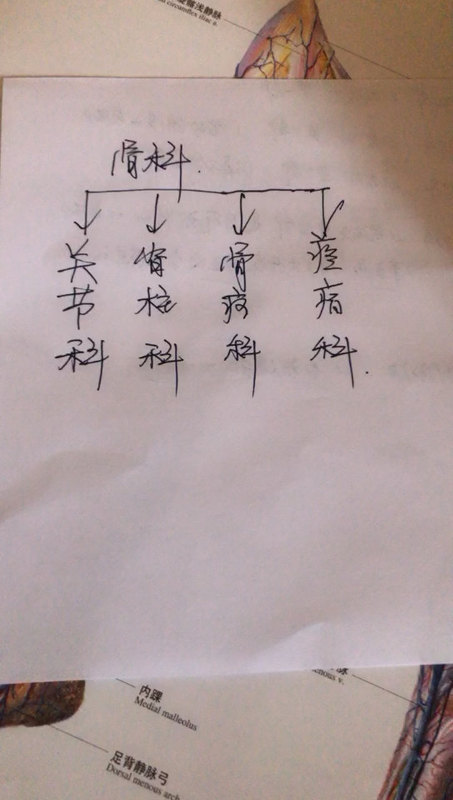 浅静脉
circumflex iliac v.
骨科.
关节科
脊柱科
骨病科
痊痛科.
内踝
Medial malleolus
enous v.
足背静脉弓
Dorsal menous arch